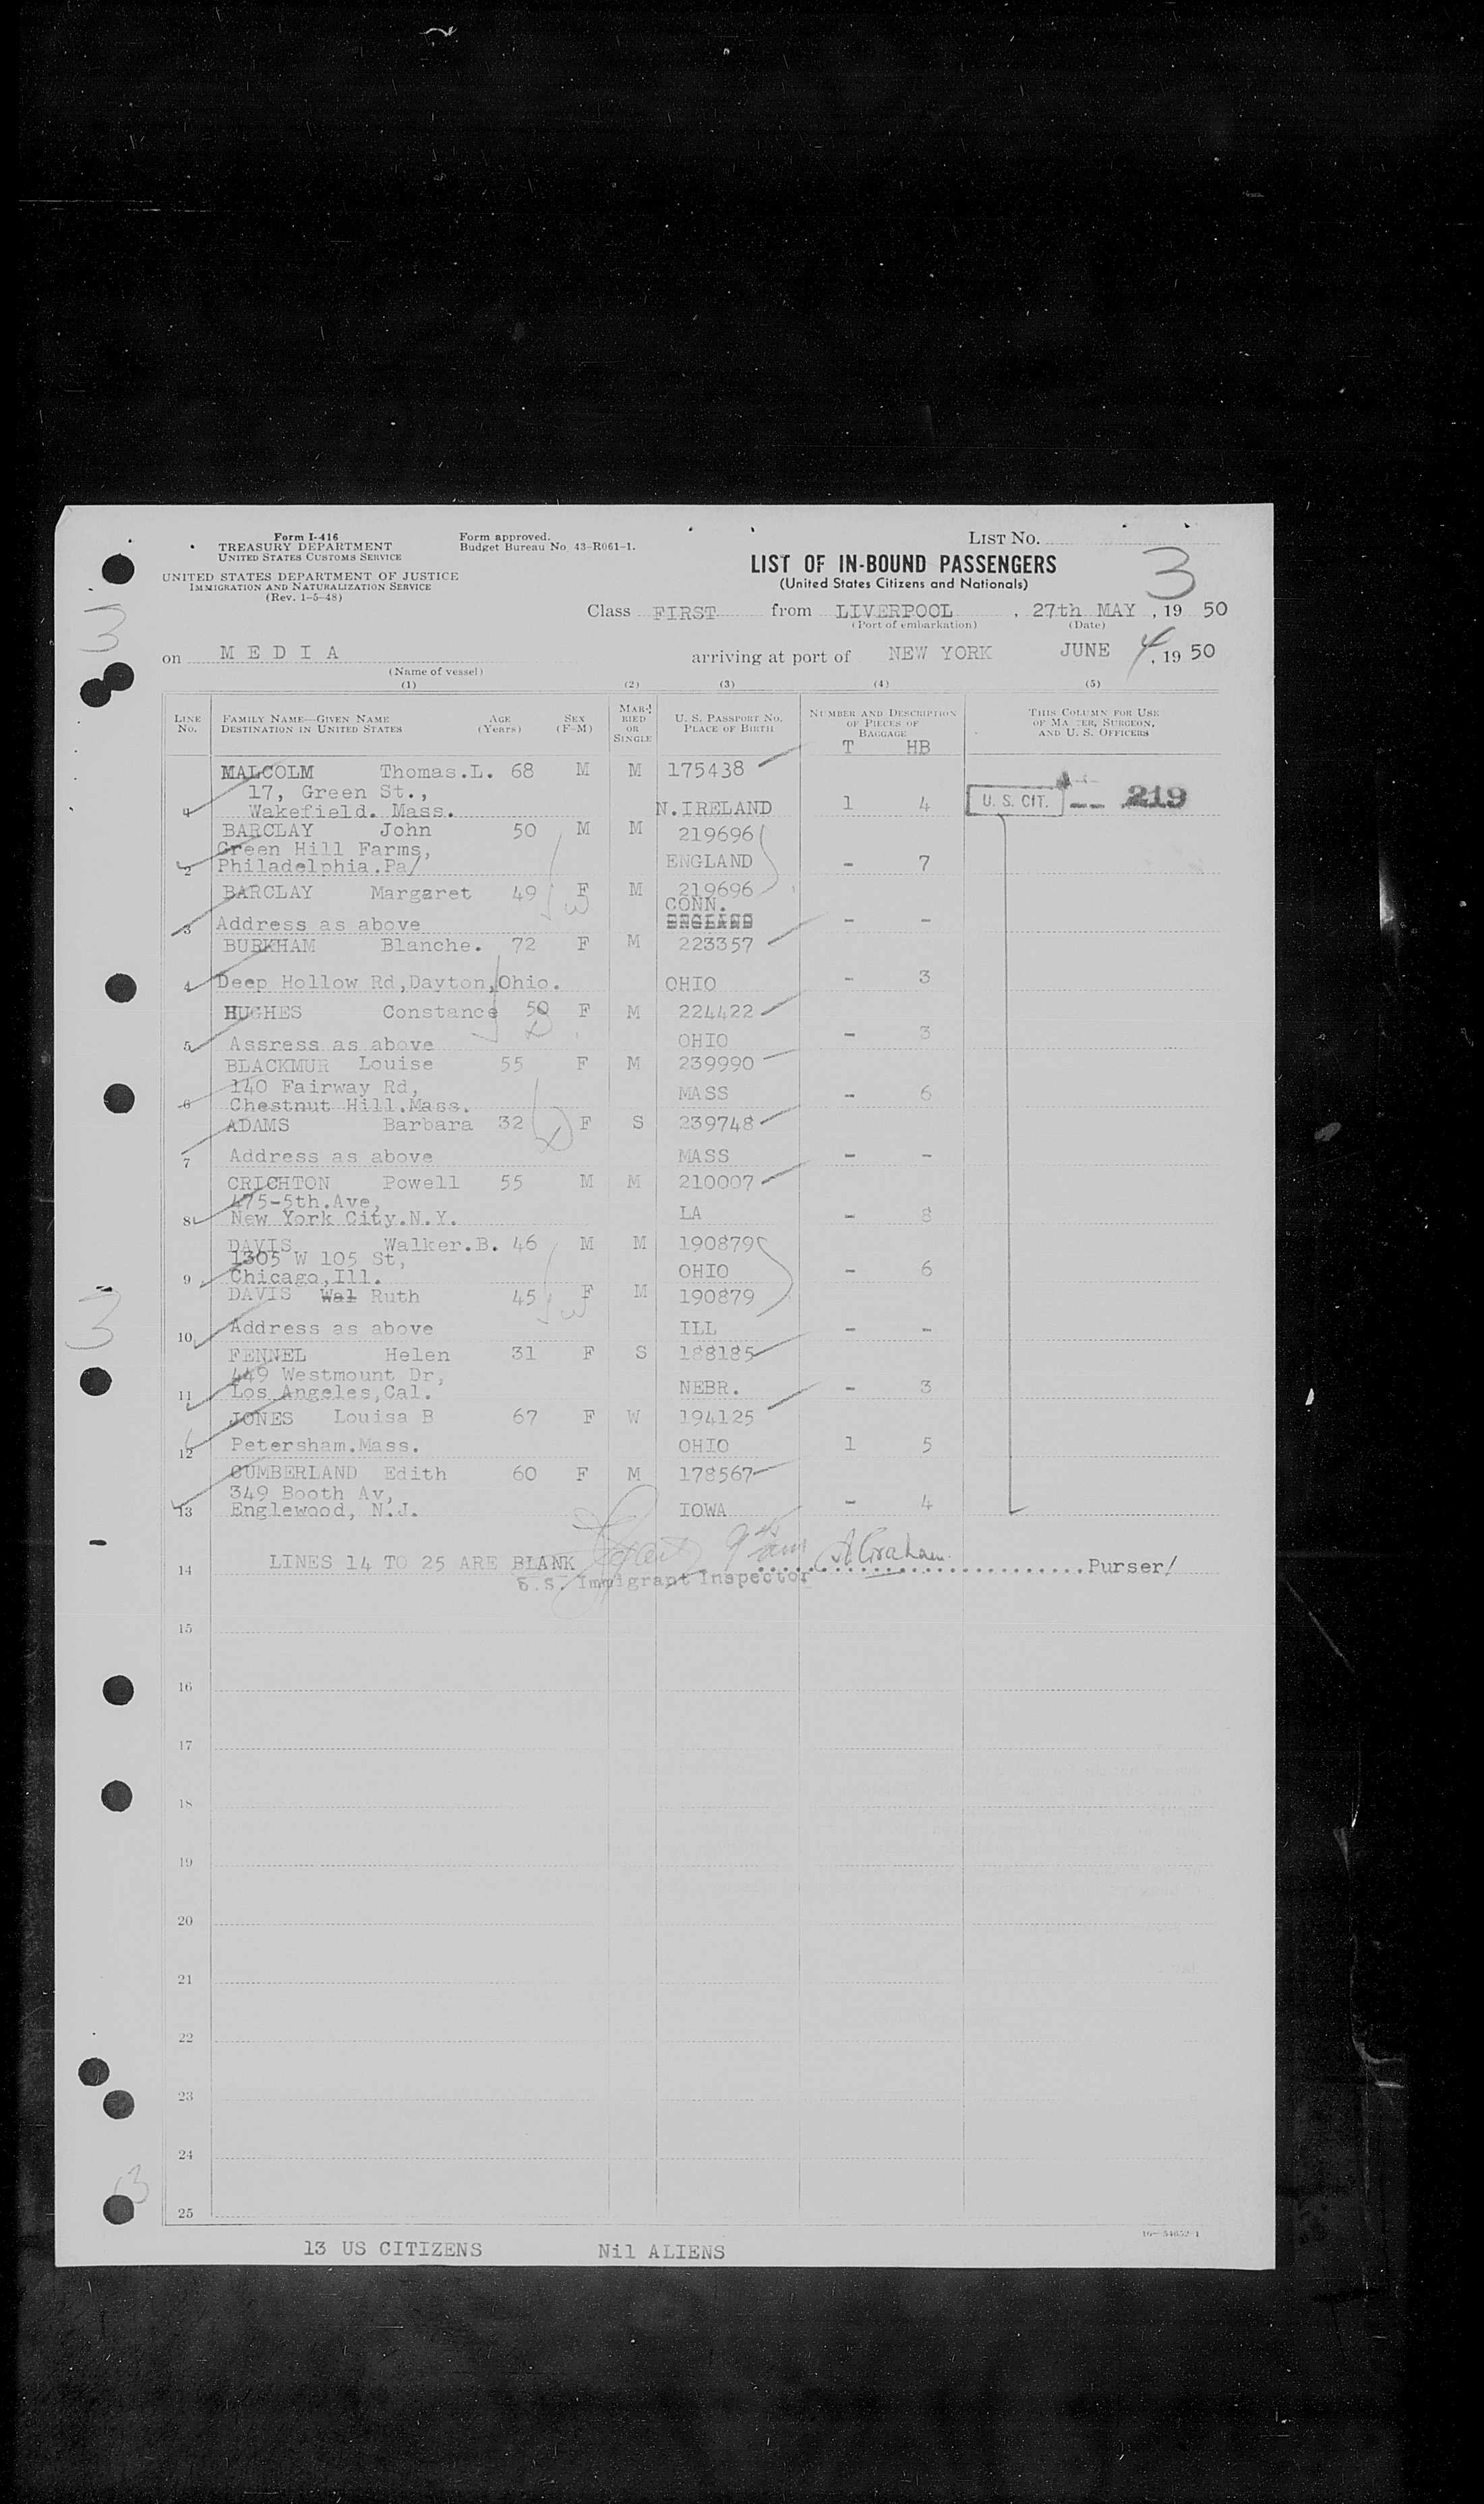 Form I-416
TREASURY DEPARTMENT
UNITED STATES CUSTOMS SERVICE
UNITED STATES DEPARTMENT OF JUSTICE
IMMIGRATION AND NATURALIZATION SERVICE
(Rev. 1-5-48)
Form approved.
Budget Bureau No. 43-R061-1.
LIST NO.
3
LIST OF IN-BOUND PASSENGERS
(United States Citizens and Nationals)
Class FIRST from LIVERPOOL, 27th MAY, 19 50
(Port of embarkation) (Date)
on MEDIA arriving at port of NEW YORK JUNE 4, 19 50
(Name of vessel)
(1) (2) (3) (4) (5)
LINE No. FAMILY NAME—GIVEN NAME DESTINATION IN UNITED STATES AGE (Years) SEX (F-M) MARRIED OR SINGLE U. S. PASSPORT NO. PLACE OF BIRTH NUMBER AND DESCRIPTION OF PIECES OF BAGGAGE THIS COLUMN FOR USE OF MASTER, SURGEON, AND U. S. OFFICERS
T HB
MALCOLM Thomas.L. 68 M M 175438
17, Green St.,
1 Wakefield. Mass. N.IRELAND 1 4 U. S. CIT. -- 219
BARCLAY John 50 M M 219696
Green Hill Farms, ENGLAND - 7
2 Philadelphia.Pa/
BARCLAY Margaret 49 F M 219696
CONN.
3 Address as above ENGLAND - -
BURKHAM Blanche. 72 F M 223357
4 Deep Hollow Rd,Dayton,Ohio. OHIO - 3
HUGHES Constance 50 F M 224422
5 Assress as above OHIO - 3
BLACKMUR Louise 55 F M 239990
140 Fairway Rd, MASS - 6
6 Chestnut Hill.Mass.
ADAMS Barbara 32 F S 239748
7 Address as above MASS - -
CRICHTON Powell 55 M M 210007
475-5th.Ave,
8 New York City.N.Y. LA - 8
DAVIS Walker.B. 46 M M 190879
1305 W 105 St,
9 Chicago,Ill. OHIO - 6
DAVIS Wal Ruth 45 F M 190879
10 Address as above ILL - -
FENNEL Helen 31 F S 188185
449 Westmount Dr,
11 Los Angeles,Cal. NEBR. - 3
JONES Louisa B 67 F W 194125
12 Petersham.Mass. OHIO 1 5
CUMBERLAND Edith 60 F M 178567
349 Booth Av,
13 Englewood, N.J. IOWA - 4
14 LINES 14 TO 25 ARE BLANK A. Graham Purser/
U.S. Immigrant Inspector
15
16
17
18
19
20
21
22
23
24
25
16-54652-1
13 US CITIZENS Nil ALIENS
3
3
3